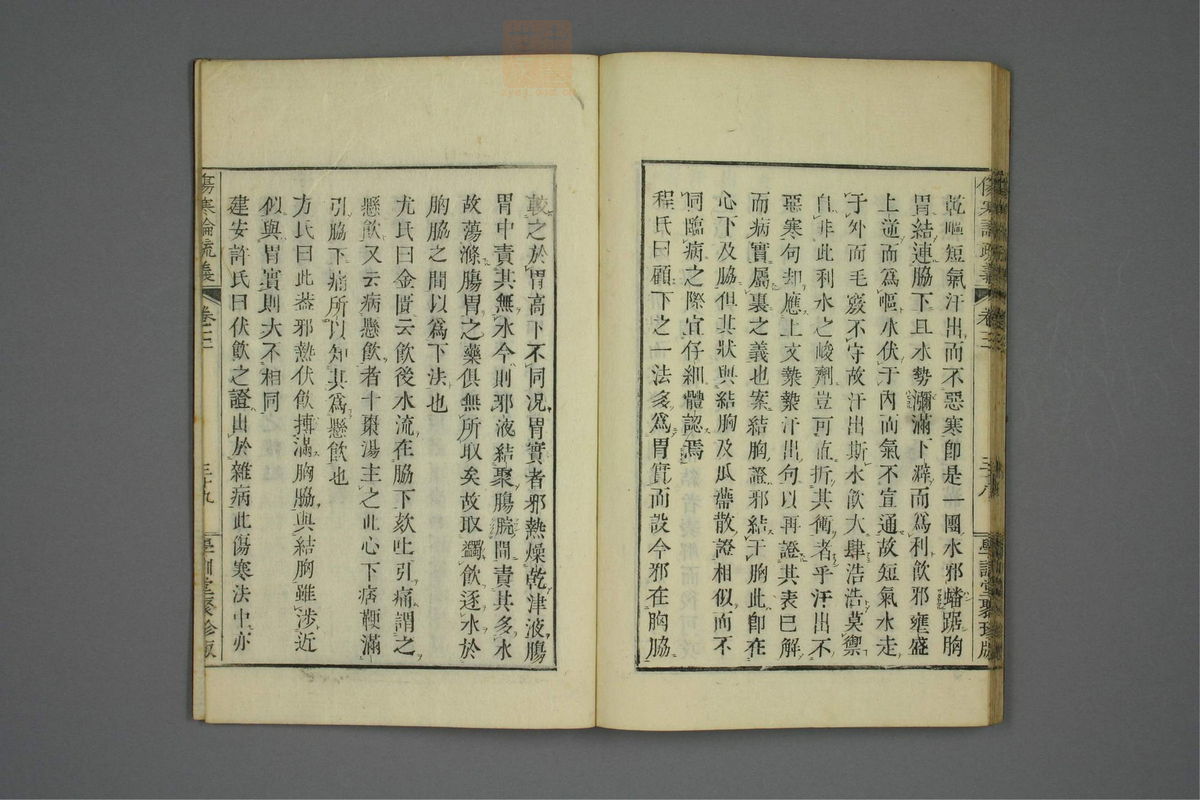 乾嘔短氣汗出而不惡寒卽是一團水邪蟠踞胸
胃結連脇下且水勢瀰滿下澼而爲利飮邪壅盛
上逆而爲嘔水伏于內而氣不宣通故短氣水走
于外而毛竅不守故汗出斯水飮大肆浩浩莫禦
自非此利水之峻劑豈可直折其衝者乎汗出不
惡寒句却應上文漐漐汗出句以再證其表已解
而病實屬裏之義也案結胸證邪結于胸此卽在
心下及脇但其狀與結胸及瓜蔕散證相似而不
同臨病之際宜仔細體認焉
程氏曰顧下之一法多爲胃實而設今邪在胸脇
較之於胃高下不同况胃實者邪熱燥乾津液腸
胃中責其無水今則邪液結聚腸脘間責其多水
故蕩滌腸胃之藥俱無所取矣故取蠲飮逐水於
胸脇之間以爲下法也
尤氏曰金匱云飮後水流在脇下欬吐引痛謂之
懸飮又云病懸飮者十棗湯主之此心下痞鞕滿
引脇下痛所以知其爲懸飮也
方氏曰此葢邪熱伏飮摶滿胸脇與結胸雖涉近
似與胃實則大不相同
建安許氏曰伏飮之證出於雜病此傷寒法中亦
傷寒論疏義
卷三
三十九
學訓堂聚珍版